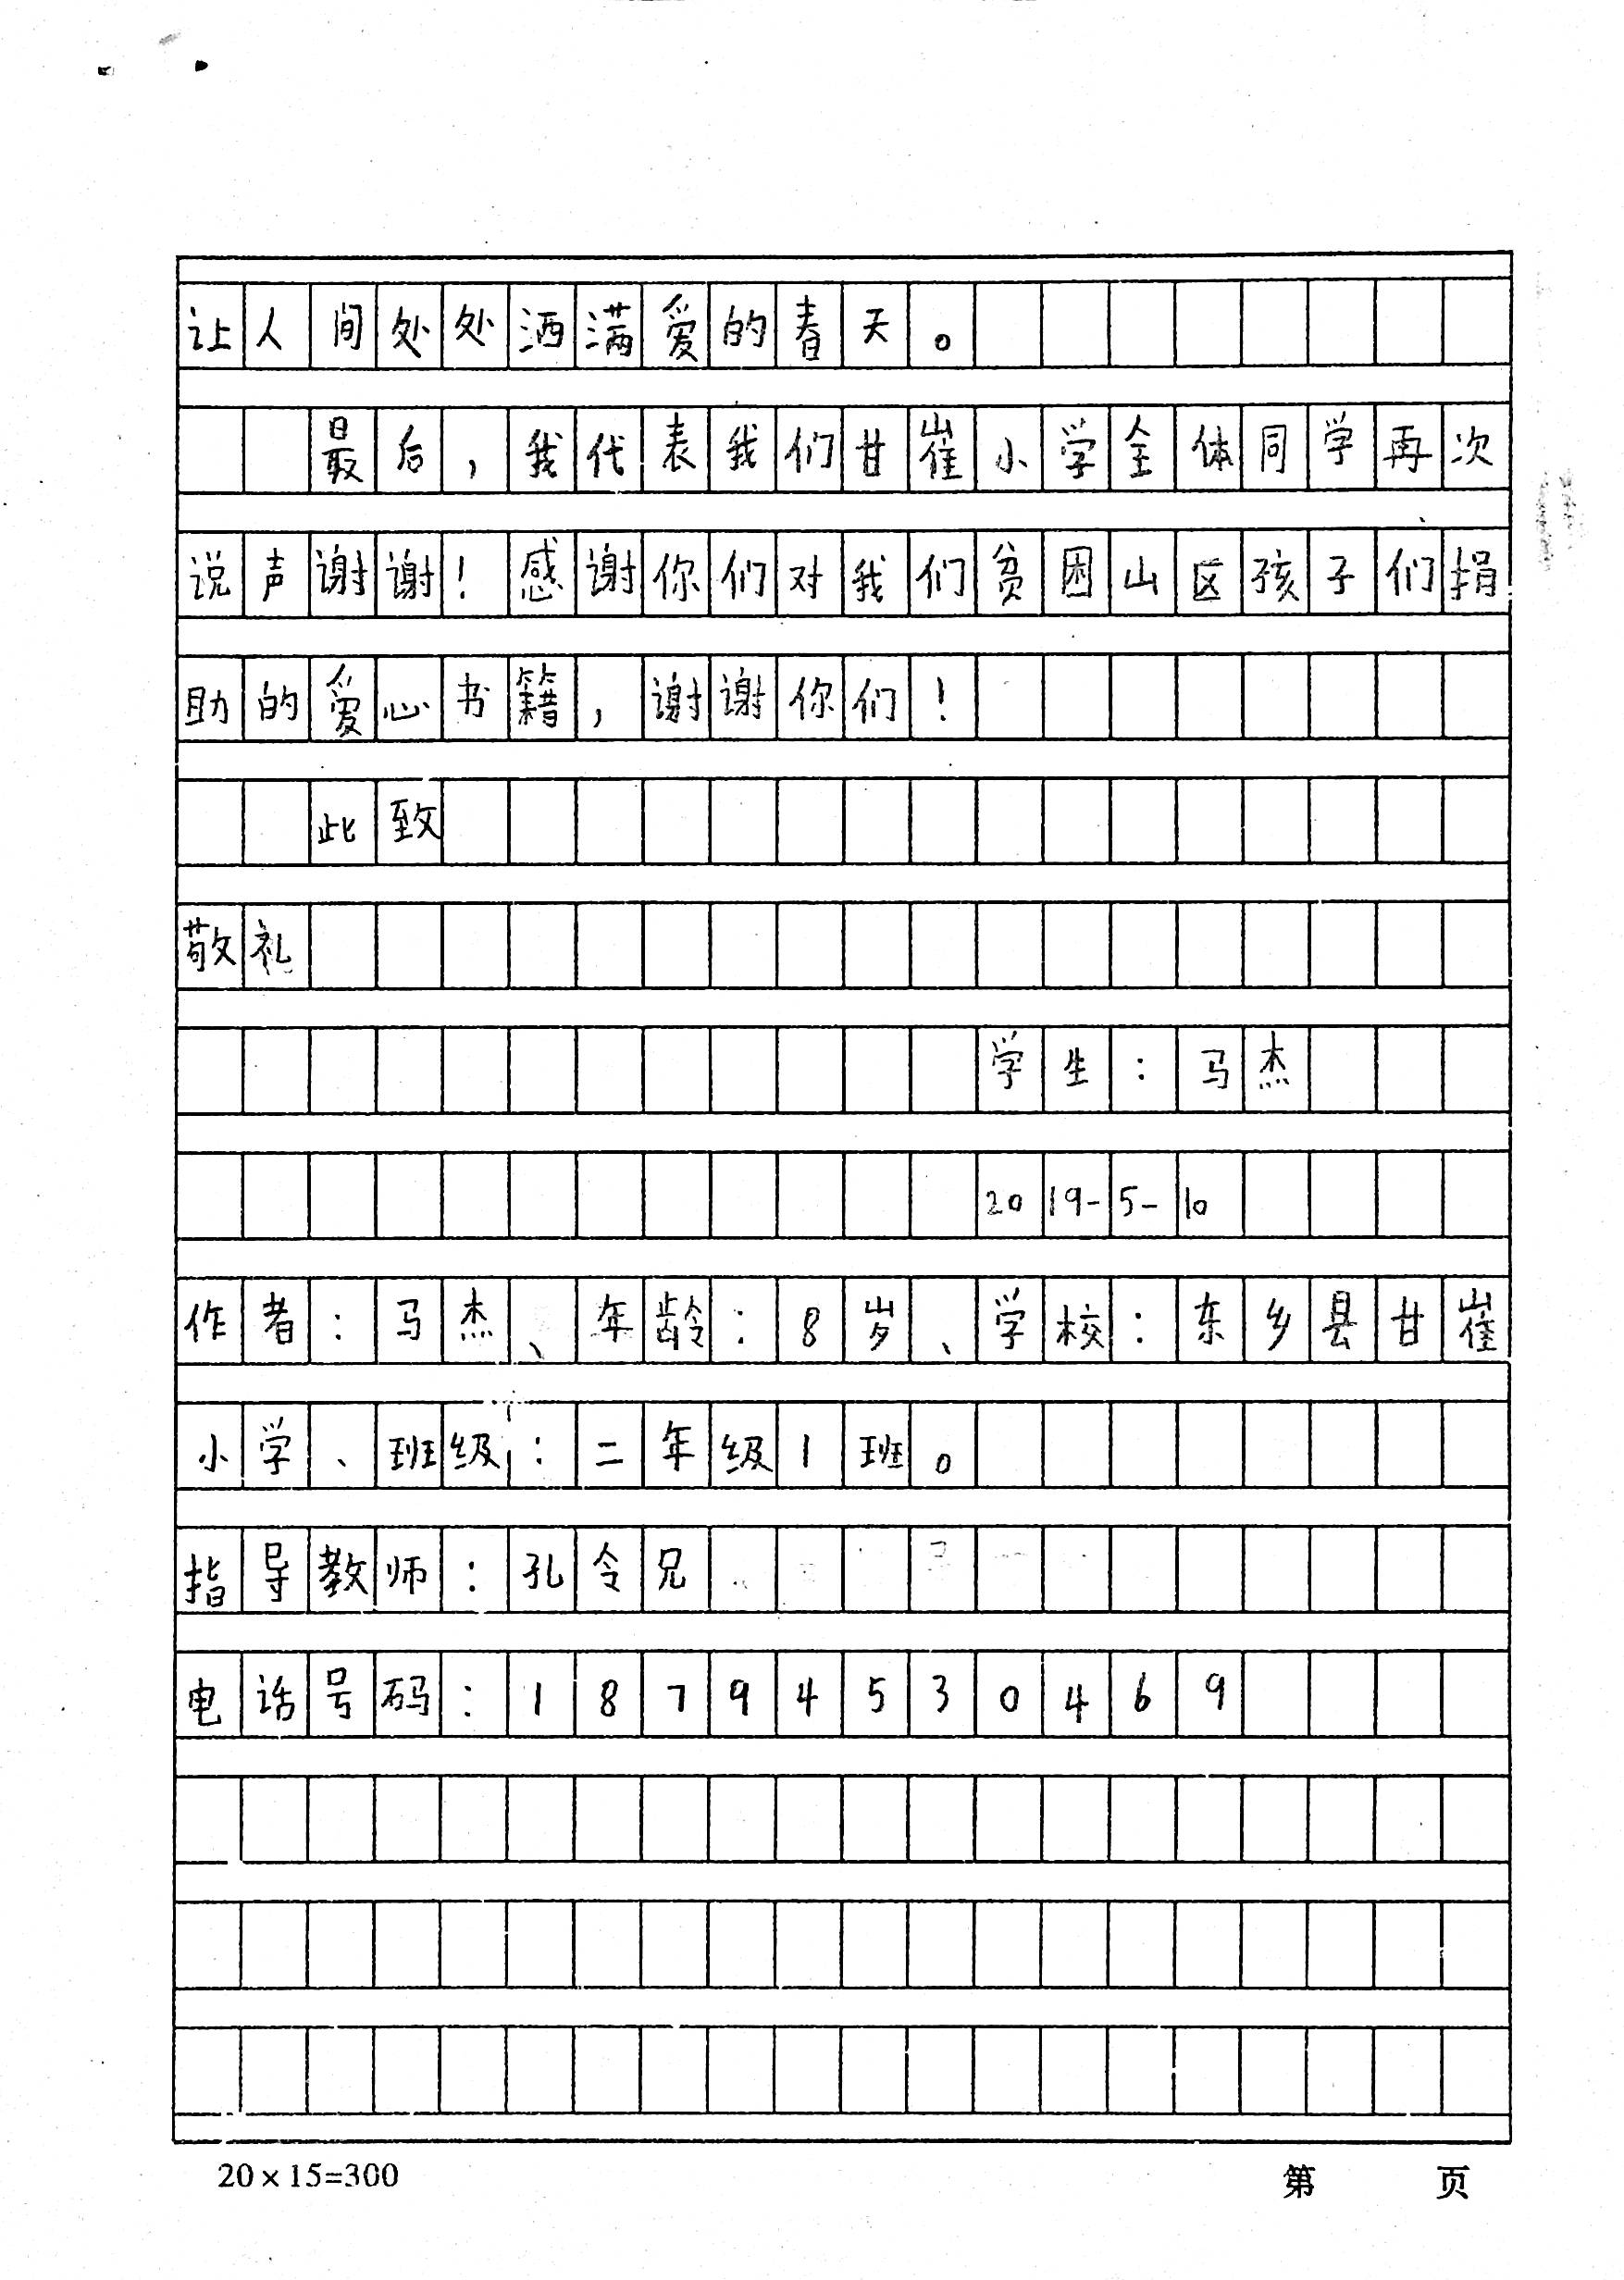 让人间处处洒满爱的春天。
最后，我代表我们甘崔小学全体同学再次
说声谢谢！感谢你们对我们贫困山区孩子们捐
助的爱心书籍，谢谢你们！
此致
敬礼
学生：马杰
2019-5-10
作者：马杰、年龄：8岁、学校：东乡县甘崔
小学、班级：二年级1班。
指导教师：孔令兄
电话号码：18794530469
20×15=300 第 页